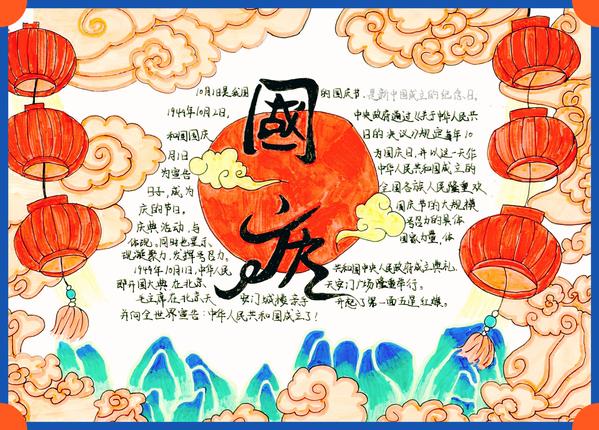 國庆
10月1日是我国的国庆节,是新中国成立的纪念日。
1949年10月2日,中央政府通过《关于中华人民共
和国国庆日的决议》规定每年10
月1日为国庆日,并以这一天作
为宣告中华人民共和国成立的
日子,成为全国各族人民隆重欢
庆的节日。国庆节的大规模
庆典活动,与号召力的具体
体现。同时也显示国家力量,体
现凝聚力,发挥号召力。
1949年10月1日,中华人民共和国中央人民政府成立典礼,
即开国大典,在北京天安门广场隆重举行。
毛主席在北京天安门城楼亲手升起了第一面五星红旗。
并向全世界宣告:中华人民共和国成立了!